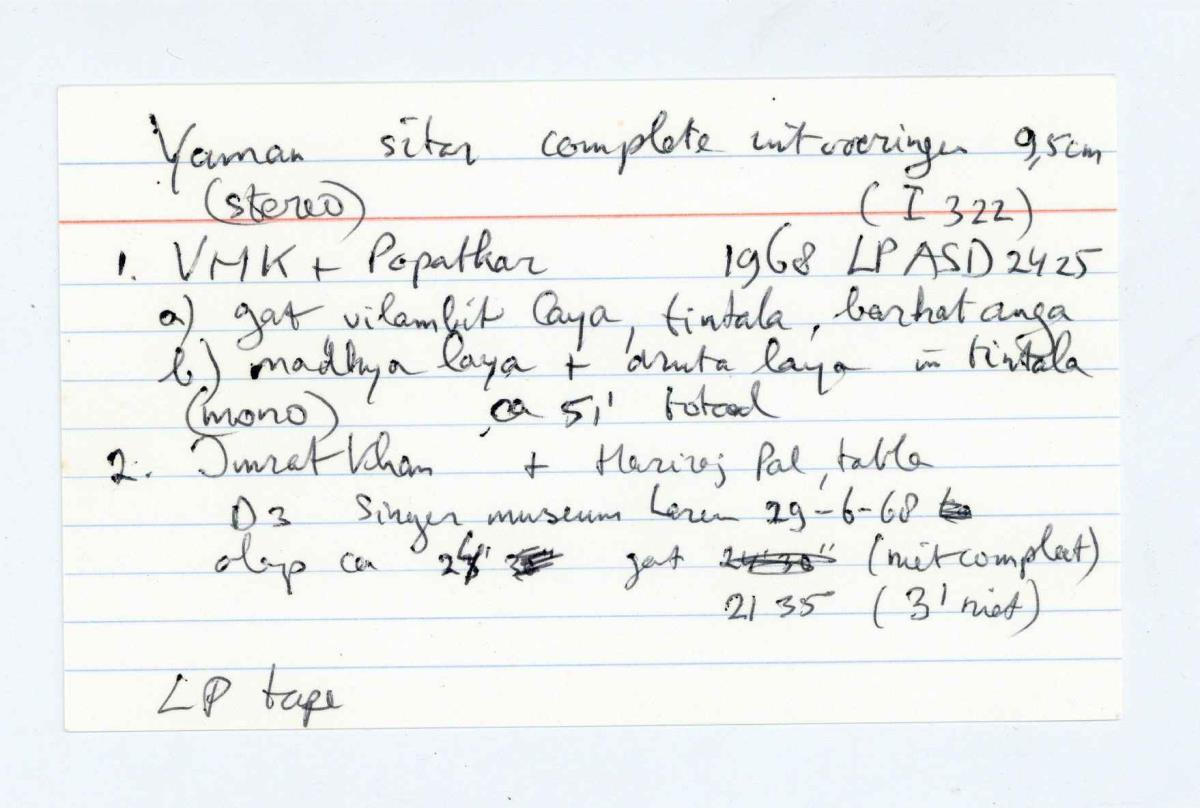 Yaman sitar complete uitvoeringen 9,5cm
(stereo) (I 322)
1. VMK + Popatkar 1968 LP ASD 2425
a) gat vilambit laya, tintala, barhat anga
b) madhya laya + druta laya in tintala
(mono) ca 51' totaal
2. Imrat Khan + Hariraj Pal, tabla
D3 Singer museum Laren 29-6-68
alap ca gat (niet compleet)
21 35 (3' niet)
LP tape